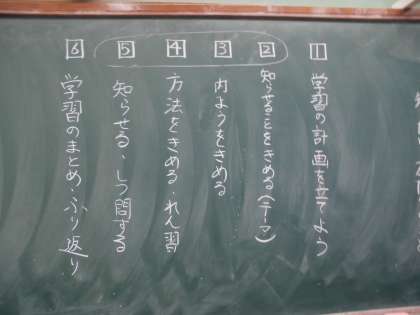 1 学習の計画を立てよう
2 知らせることをきめる(テーマ)
3 内ようをきめる
4 方法をきめる・れん習
5 知らせる、しつ問する
6 学習のまとめ・ふり返り